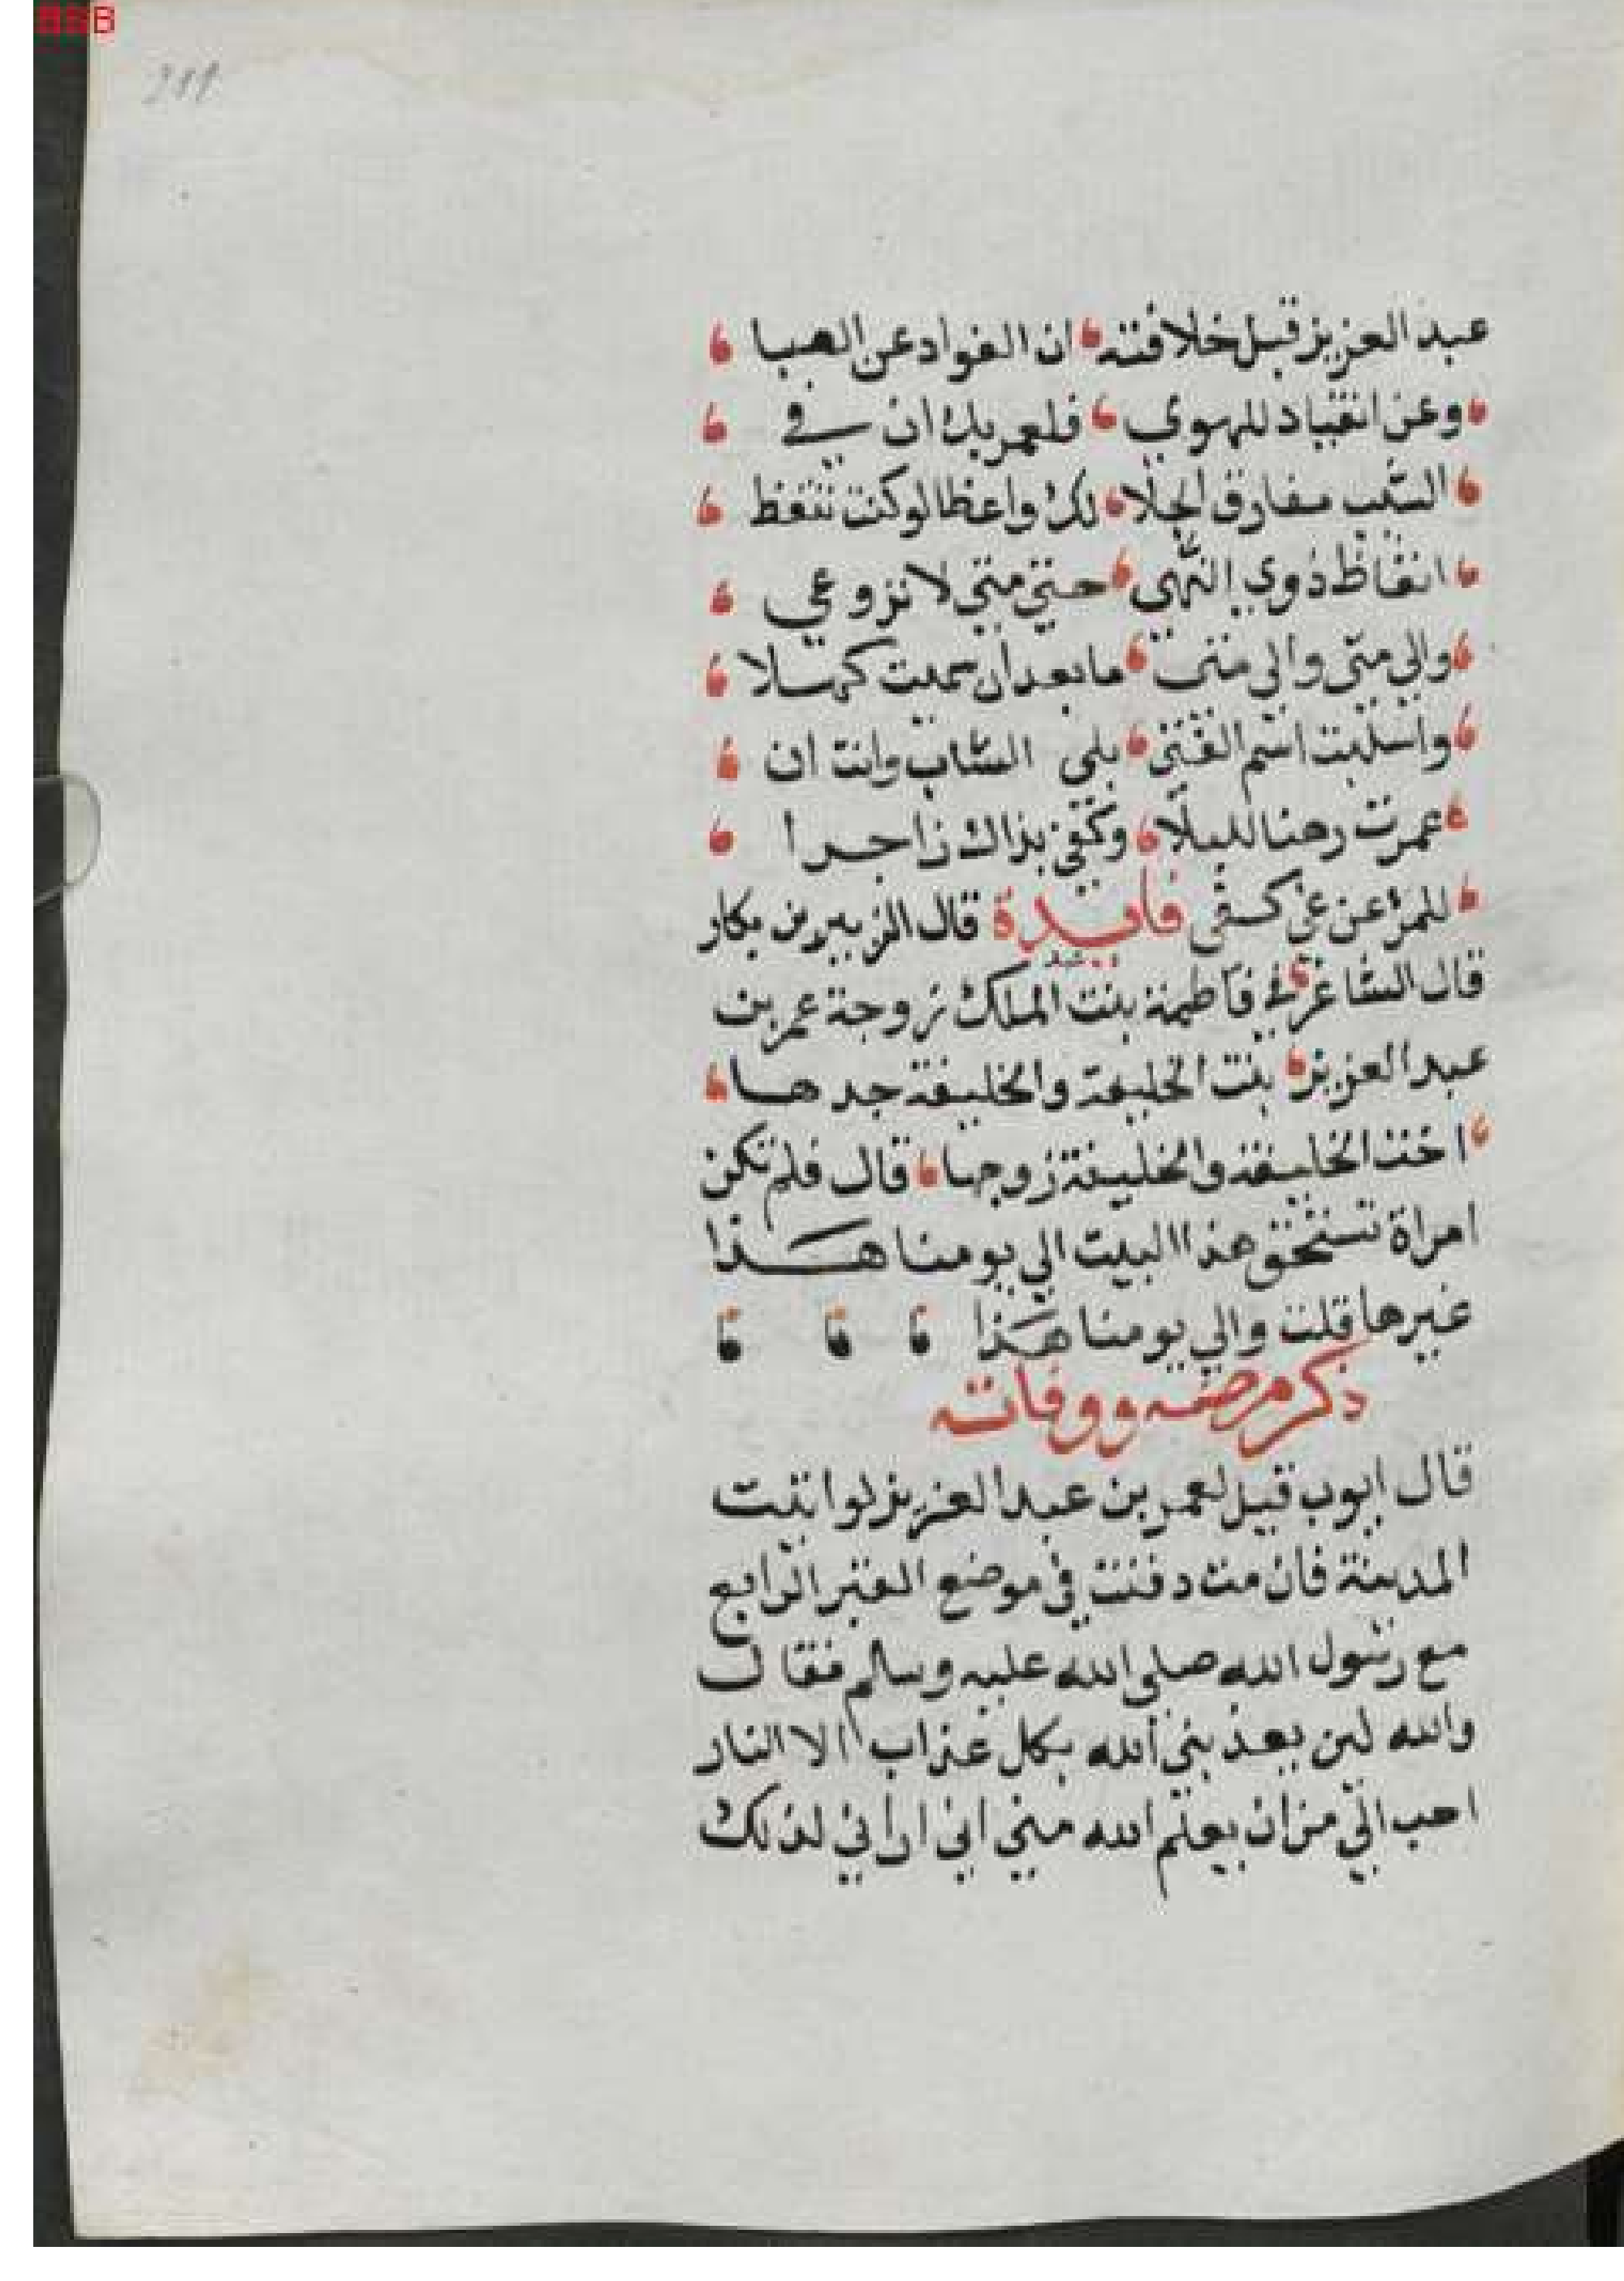 211
عبد العزيز قبل خلافته ان الفواد عن الصبا
وعن انقياد للهوي فلعمر بك ان في
الشيب مفارق الجلا لك واعظا لو كنت تتعظ
اتعاظ ذوي النهي حتي متي لا تزوعي
والي متي والي متي ما بعد ان سميت كهلا
واستلبت اسم الفتي بلي الشاب وانت ان
عمرت رهنا للبلا وكفي بذاك زاجرا
للمرء عن غي كفي فايدة قال الزبير بن بكار
قال الشاعر في فاطمة بنت الملك زوجة عمر بن
عبد العزيز بنت الخليفة والخليفة جدها
اخت الخليفة والخليفة زوجها قال فلم تكن
امراة تستحق هذا البيت الي يومنا هذا
غيرها قلت والي يومنا هذا
ذكر مرضه ووفاته
قال ايوب قيل لعمر بن عبد العزيز لو اتيت
المدينة فان مت دفنت في موضع القبر الرابع
مع رسول الله صلي الله عليه وسلم فقال
والله لين يعذبني الله بكل عذاب الا النار
احب الي من ان يعلم الله مني اني اراني لذلك